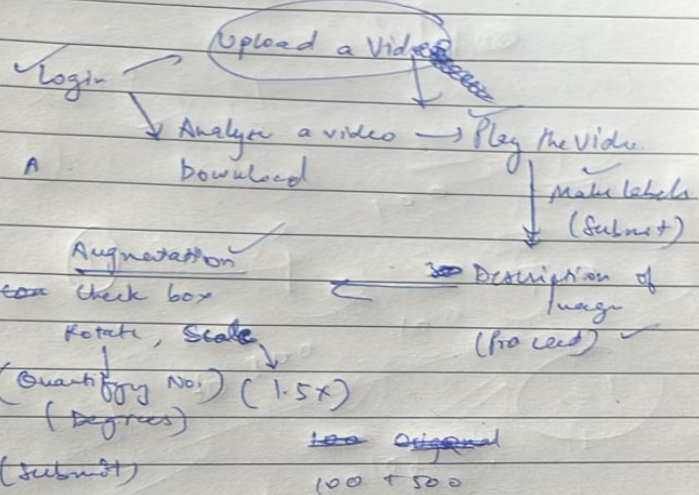 Upload a Video
Login
Analyse a video → Play the video
A
Download
Make labels
(Submit)
Augmentation
Description of
check box
Image
Rotate, Scale
(Proceed)
(Quantify No.) (1.5x)
(Degrees)
100 Original
(Submit)
100 + 500